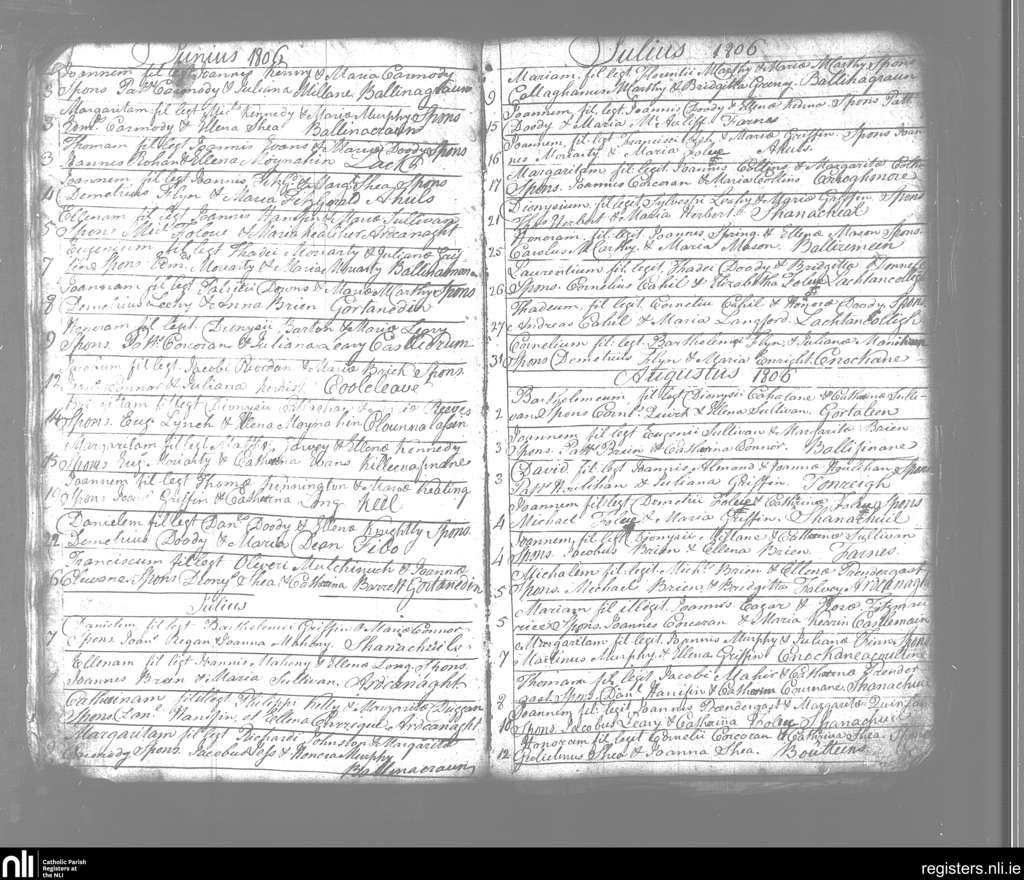 Junius 1806
3 Joannem fil legt Joannes Kenny & Maria Carmody
Spons Patt Carmody & Juliana Millane Ballinagraun
Margaritam fil legt Mic Kennedy & Maria Murphy Spons
3 Edmd Carmody & Ellena Shea Ballinacraun
Thomam fil legt Joannis Evans & Maria Doody Spons
3 Joannes Rohan & Ellena Moynahin Lack
Joannem fil legt Joannis & Marg Shea Spons
4 Demetrius Flyn & Maria Fitzgerald Ahuls
Ellenam fil leg Joannis & Maria Sullivan
5 Spons Mic Foloue & Maria Ardcanaght
Eugenium fil legt Thadei Moriarty & Juliana
7 Spons Edmd Mouarty & Maria Mouarty
Joannam fil legt Patritii Downs & Maria Marthy Spons
8 Demetrius Leahy & Anna Brien Gortaneddih
Honoram fil legt Dionysii Barton & Maria Leary
9 Spons Patt Corcoran & Juliana Leary Castledrum
fil legt Jacobi Riordan & Maria Spons
12 Connor & Juliana Cooleleave
fil legt Dionysii Callaghan & Reeves
14 Spons Eug Lynch & Ellena Moynahin
Margaritam fil legt & Ellena Kennedy
15 Spons Eug Moriarty & Catherina Evans Killeenafinane
Joannem fil legt Thoma & Maria Keating
Spons Joans Griffin & Catherina Long Keel
Danielem fil legt Danl Doody & Ellena Knightly Spons
22 Demetrius Doody & Maria Dean Fibo
Franciscum fil legt Oliveri Mulchinuck & Joanna
Spons Dionys Shea & Catherina Barrett Gortanedin
Julius
7 Danielem fil legt Bartholemei Griffin & Maria Connor
Spons Joans Regan & Joanna Mahony Shanachiels
Ellenam fil legt Joannis Mahony & Ellena Long Spons
Joannes Brien & Maria Sullivan Ardcanaght
fil legt Philippi Kelly & Margarita Duggan
Spons Danl Hanifin et Ellena Ardcanaght
Margaritam fil legt Richardi Johnston & Margarita
Spons Jacobus & Honora Murphy
Ballinacraun
Julius 1806
Mariam fil legt Florentii Marthy & Maria Marthy Spons
9 Callaghanus Marthy & Bridgitta Greny Ballihagraun
Joannem fil legt Joannis Doody & Ellena Spons Patt
15 Doody & Maria Mc Auliff Farnes
Joannem fil legt Francisci & Maria Griffin Spons Joan
16 nes Moriarty & Maria Foloue Ahuls
Margaritam fil legt Joannis Collins & Margarita
17 Spons Joannes Corcoran & Maria Collins Croaghmore
Dionysium fil legt Sylvestri Lesley & Maria Griffin Spons
21 Thos Herbert & Maria Herbert Shanacheal
Honoram fil legt Joannes Spring & Ellena Mason Spons
25 Carolus McCarthy & Maria Mason Ballireemeen
Laurentium fil legt Thadei Doody & Bridgitta
26 Spons Cornelius Cahil & Elizabetha Foloue Lachtancollig
Thadeum fil legt Cornelii Cahil & Honora Doody Spons
27 Andreas Cahil & Maria Langford Lachtancolligh
Cornelium fil legt Bartholemei Flyn & Juliana
31 Spons Demetrius Flyn & Maria Enright Cnockane
Augustus 1806
Bartholemeum fil legt Dionysii Cahalane & Catharina Sulli-
2 van Spons Cornls Quirk & Ellena Sullivan Gortalien
Joannem fil legt Eugenii Sullivan & Margarita Brien
3 Spons Patt Brien & Catharina Connor Ballifinane
David fil legt Joannis Almond & Joanna Houlihan Spons
3 Patt Houlihan & Juliana Griffin Fenreigh
Joannem fil legt Demetrii Foloue & Catharina Foloue Spons
4 Michael Foloue & Maria Griffin Shanachuil
Joannem fil legt Dionysii Millane & Catharina Sullivan
4 Spons Jacobus Brien & Ellena Brien Farnes
Michalem fil legt Michl Brien & Ellena Prendergast
5 Spons Michael Brien & Bridgitta Falvey Ardcanaght
Mariam fil illegit Joannis Eagar & Nora Fitzmau
5 rice Spons Joannes Corcoran & Maria Castlemain
Margaritam fil legit Joannis Murphy & Juliana Spons
7 Martinus Murphy & Ellena Griffin
Thomam fil legt Jacobi Mahir & Catharina Prender
8 gast Spons Danl Hanifin & Catharina Cournane Shanachuil
Joannem fil legt Joannis Prendergast & Margarita Quinlan
10 Spons Jacobus Leary & Catharina Foloue Shanachuil
Honoram fil legt Cornelii Corcoran & Cathrina Shea Spons
12 Gulielmus Shea & Joanna Shea
nli
Catholic Parish
Registers at
the NLI
registers.nli.ie